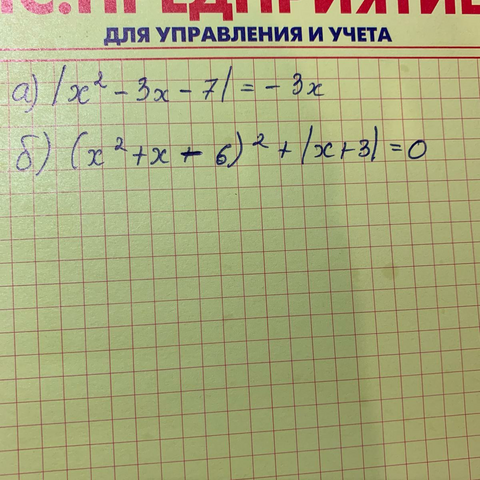 1С:ПРЕДПРИЯТИЕ
ДЛЯ УПРАВЛЕНИЯ И УЧЕТА
а) |x² - 3x - 7| = - 3x
б) (x² + x - 6)² + |x + 3| = 0